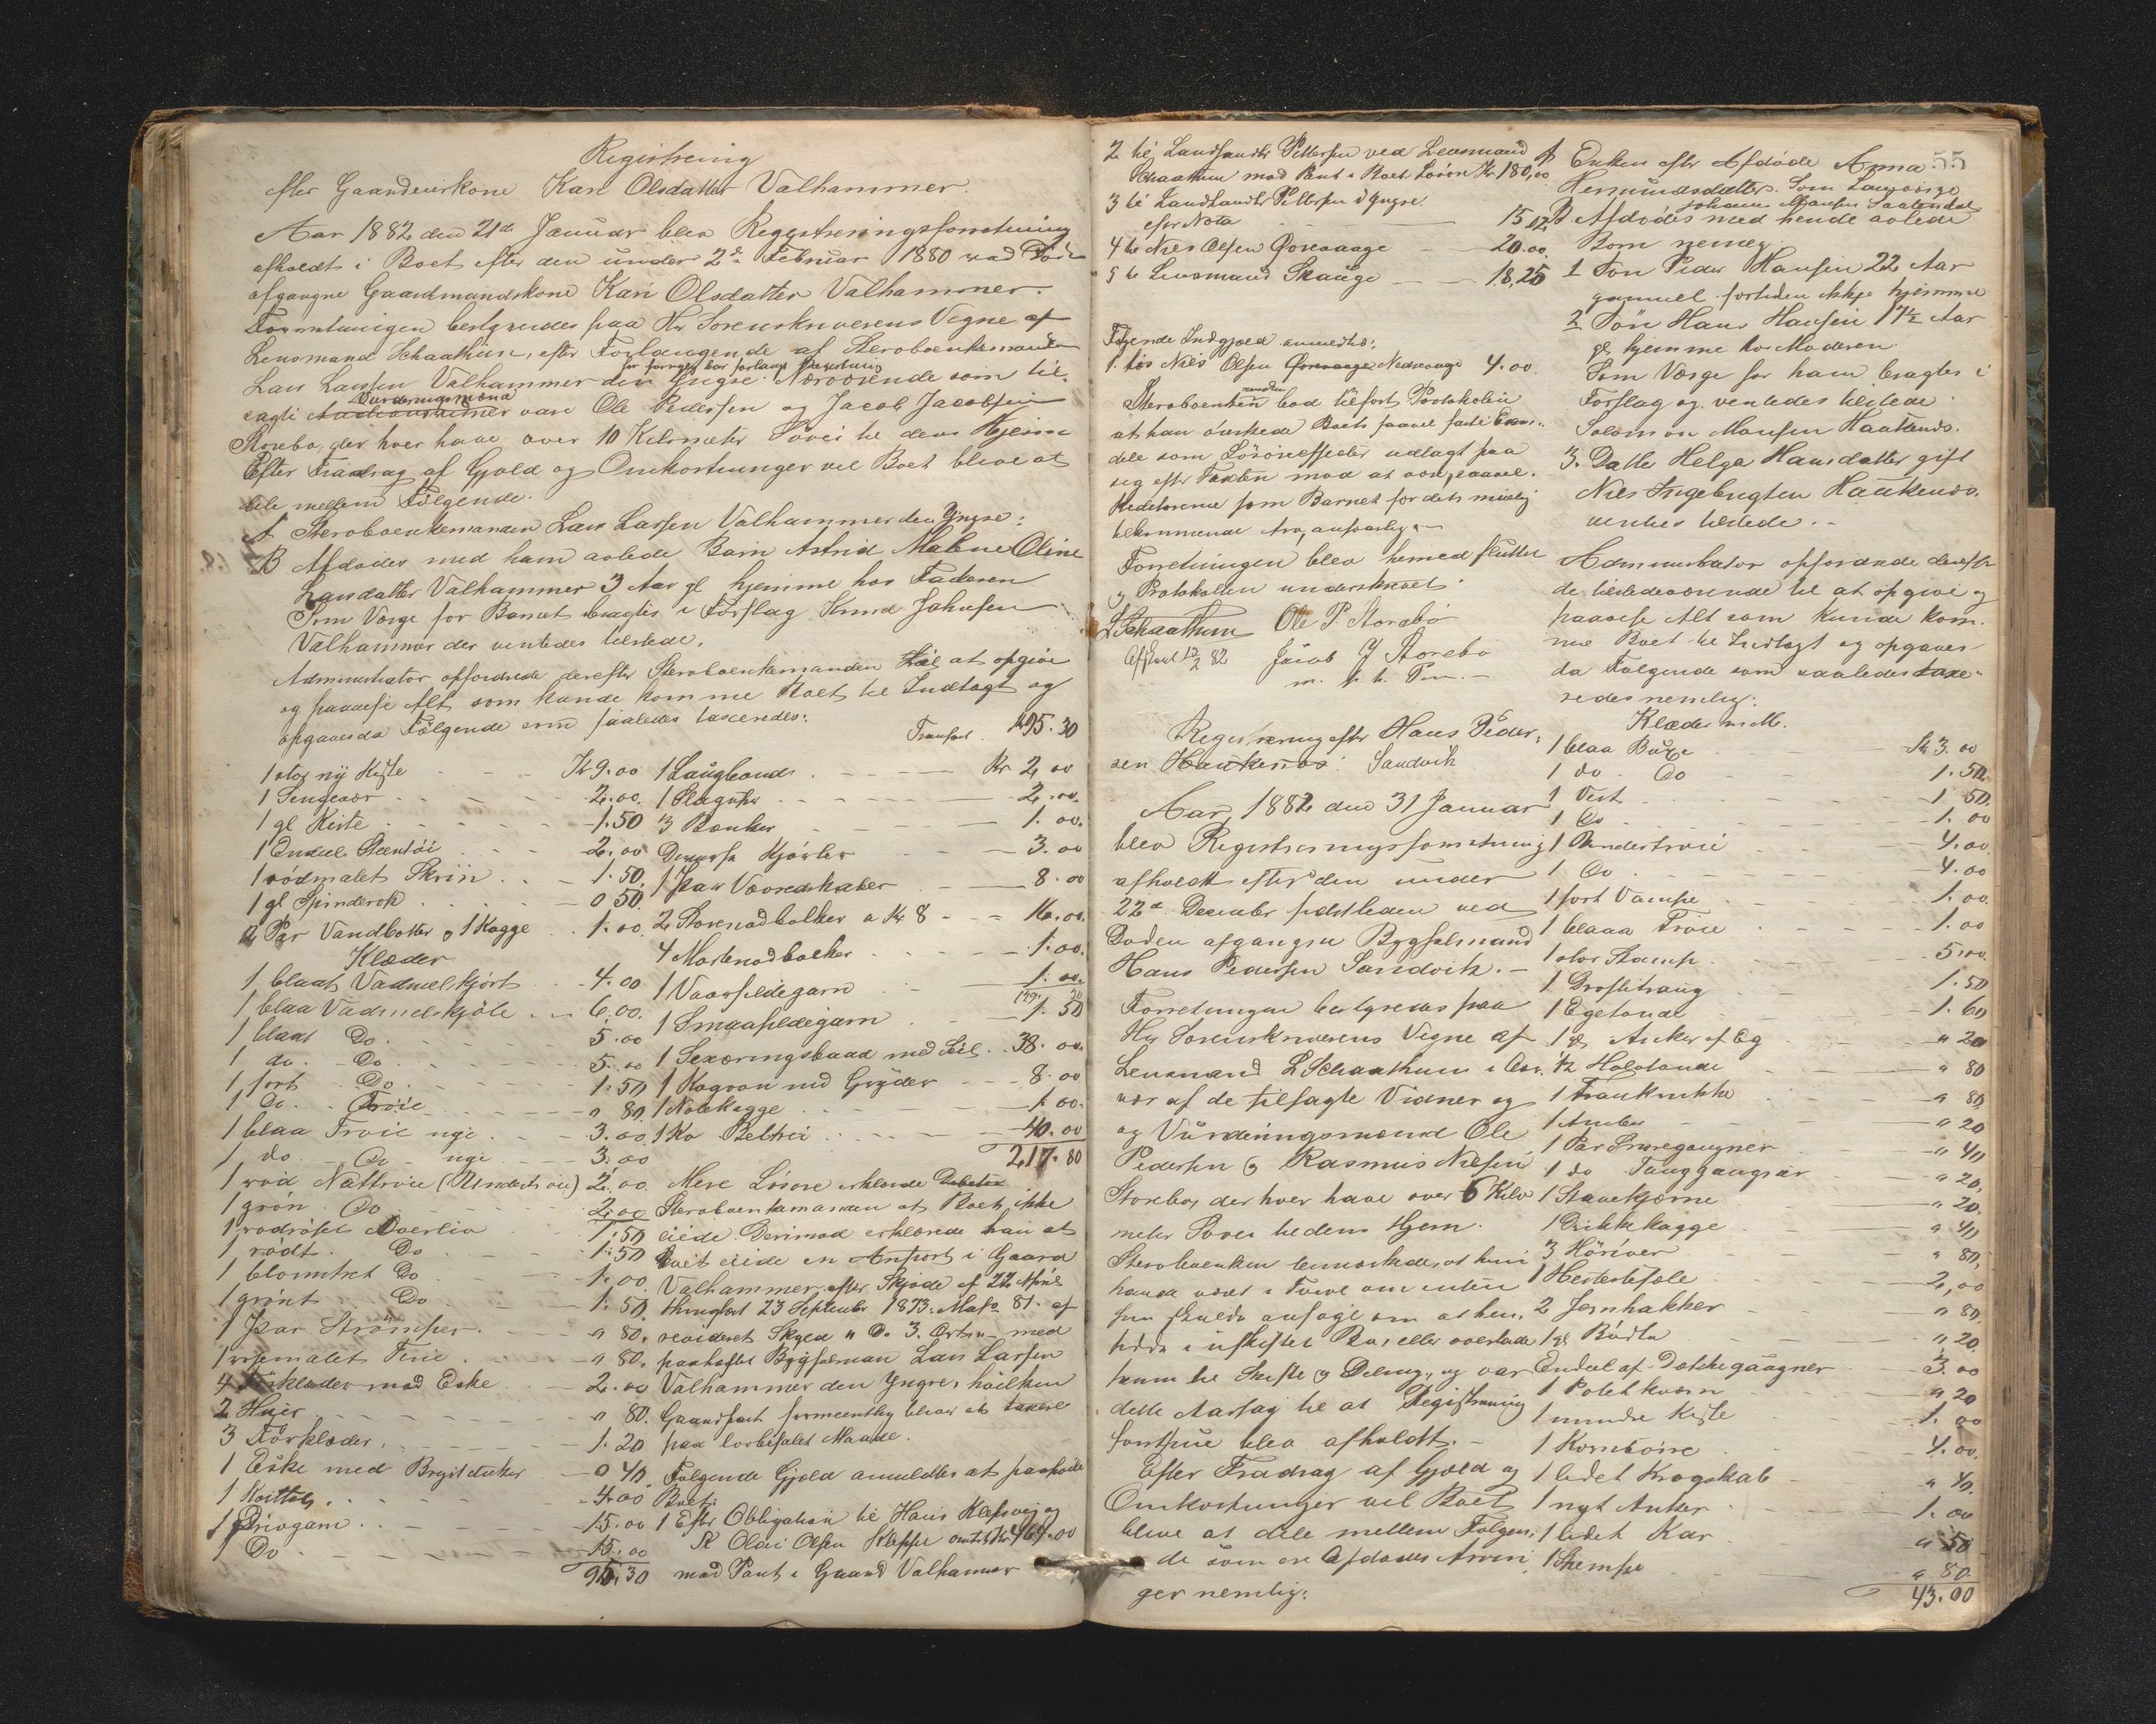 Registrering
efter Gaardeierkone Kari Olsdatter Valhammer.
Aar 1882 den 21de Januar blev Registreringsforretning
afholdt i Boet efter den under 2den Februar 1880 ved Døden
afgangne Gaardmandskone Kari Olsdatter Valhammer.
Forretningen bestyredes paa Hr Sorenskriverens Vegne af
Lensmand Schaathun, efter Forlangende af Sterboenkemanden
Lars Larsen Valhammer den Yngre. Nærværende som til-
sagte Vurderingsmænd vare Ole Pedersen og Jacob Jacobsen
Storebø, der hver have over 10 Kilometer Søvei til deres Hjem
Efter Fradrag af Gjæld og Omkostninger vil Boet blive at
dele mellem Følgende.
A Sterboenkemanden Lars Larsen Valhammer den Yngre:
B Afdødes med ham avlede Barn Astrid Malene Oline
Larsdatter Valhammer 3 Aar gl hjemme hos Faderen
Som Værge for Barnet bragtes i Forslag Knud Johnsen
Valhammer der ventedes tilstede.
Administrator opfordrede derefter Sterboenkemanden til at opgive
og paavise Alt som kunde komme Boet til Indtægt og
opgaves da Følgende som saaledes taxeredes:
1 stor ny Kiste Kr 9.00
1 Sengevær 2.00.
1 gl Kiste 1.50
1 Endeel Steentøi 2.00
1 rødmalet Skrin 1.50.
1 gl Spinderok 0 50.
1 Par Vandbøtter og 1 Kagge 1.00
Klæder
1 blaat Vadmelskjørt 4.00
1 blaa Vadmelskjole 6.00.
1 blaat Do. 5.00
1 do. Do. 5.00
1 sort Do. 1.50
1 Do. Trøie " 80
1 blaa Trøie nye 3.00
1 do. Do nye 3.00
1 rød Nattrøie (Undertrøie) 2.00
1 grøn Do 2.00
1 rødrosset Overliv 1.50
1 rødt Do 1.50
1 blomstret Do 1.00
1 grønt Do 1.50
1 Par Strømper " 80.
1 rosemalet Tine " 80.
4 med Eske 2.00
2 Huer " 80.
3 Forklæder 1.20
1 Eske med Brystduker 0 40
1 Koittel 4.00
1 Drivgarn 15.00
1 Do 15.00
95.30
Transport 95.30
1 Laugbaand Kr 2 00
1 Slaguhr 2.00.
3 Bænker 1.00.
Diverse Kjørler 3.00
1 Par Væveredskaber 8.00
2 Storenodbolker a Kr 8 16.00.
4 Mortenodbolker 1.00.
1 Vaarsildegarn 1.00.
1 Smaasildegarn 1.50
1 Sexæringsbaad med Seil 38.00.
1 Kogeovn med Gryder 8.00
1 Notekagge 1.00.
1 Ko Beltrei 40.00
217.80
Mere Løsøre erklærede
Sterboenkemanden at Boet ikke
eiede. Derimod erklærede han at
Boet eiede en Anpart i Gaard
Valhammer efter Skjøde af 22 April
thinglæst 23 September 1873. Mat. No 81. af
revideret Skyld " D. 3. Ort " med
paaheftet Bygselman Lars Larsen
Valhammer den Yngre, hvilken
Gaardpart formentlig bliver at taxere
paa lovbefalet Maade.
Følgende Gjæld anmeldtes at paahvile
Boet:
1 Efter Obligation til Hans Kleppevig og
R Olai Olsen Kleppe 464.00
med Pant i Gaard Valhammer
2 til Landhandler Pettersen ved Lensmand
Schaathun med Pant i Boets Løsøre Kr 180,00
3 til Landhandler Pettersen d Yngre
efter Nota 15 12
4 til Niels Olsen 20.00.
5 til Lensmand Skauge 18,25
Følgende Indgjæld anmeldtes:
1. hos Niels Olsen Nedrevaage 4.00.
Sterboenkemanden bad tilført Protokollen
at han ønskede Boets saavel faste Eien-
dele som Løsøreeffecter udlagt paa
sig efter Taxten mod at være saavel
Kreditorerne som Barnet for dets mulig
tilkommende Arv, ansvarlig.
Forretningen blev hermed sluttet
og Protokollen underskrevet.
L Schaathun Ole P. Storebø
Afskrevet 15/2 82 Jacob J Storebø
m. p. h. Pen.
Registrering efter Hans Peder-
sen Haukenæs Sandvik
Aar 1882 den 31 Januar
blev Registreringsforretning
afholdt efter den under
22de December sidstleden ved
Døden afgangne Bygselmand
Hans Pedersen Sandvik.
Forretningen bestyredes paa
Hr Sorenskriverens Vegne af
Lensmand L Schaathun i Over-
vær af de tilsagte Vidner og
og Vurderingsmænd Ole
Pedersen og Rasmus Nilsen
Storebø, der hver have over 6 Kilo
meter Søvei til deres Hjem.
Sterboenken bemærkede, at hun
havde været i Tvivl om enten
hun skulde ansøge om at hen-
sidde i uskiftet Bo, eller overlade
samme til Skifte og Deling, og var
dette Aarsag til at Registrering
først nu blev afholdt.
Efter Fradrag af Gjæld og
Omkostninger vil Boet
blive at dele mellem Følgen-
de som ere Afdødes Arvin-
ger nemlig:
55
A Enken efter Afdøde Anna
Hermundsdatter. Som Laugværge
Johannes Monsen Sandvik
B Afdødes med hende avlede
Børn nemlig
1 Søn Peder Hansen 22 Aar
gammel fortiden ikke hjemme
2 Søn Hans Hansen 17½ Aar
gl hjemme hos Moderen.
Som Værge for ham bragtes i
Forslag og ventedes tilstede
Salomon Monsen Haukenæs.
3. Datter Helga Hansdatter gift
Niels Ingebrigtsen Haukenæs.
ventes tilstede.
Administrator opfordrede derefter
de tilstedeværende til at opgive og
paavise Alt som kunde kom-
me Boet til Indtægt og opgaves
da Følgende som saaledes taxe-
redes nemlig:
Klæder m.M.
1 blaa Buxe Kr 3.00
1 do. Do 1.50
1 Vest 1 50.
1 Do 1.00
1 Undertrøie 4.00.
1 Do 4.00
1 sort Vampe 1.00.
1 blaaa Trøie 1.00
1 stor Stamp 5.00.
1 Droslitraug 1.50
1 Egetønde 1.60
1 gl. Anker af Eg " 20
½ Holotønde " 80
1 Trankrukke " 80
1 Amber " 20
1 Par Snøregangner " 40
1 do Tauggangner " 20.
1 Stavekjærne " 20.
1 Drikkekagge " 40
3 Høriver " 80.
1 Hestestefæle 2,00
2 Jernhakker " 80.
1 gl Bøtte " 20.
Endeel af Dækkegaagner 3.00
1 Potetkværn " 20
1 mindre Kiste 1.00
1 Kornbørre 4.00.
1 lidet Krogskab " 40.
1 nyt Anker 1.00
1 lidet Kar " 50
1 Skempe " 80
43.00